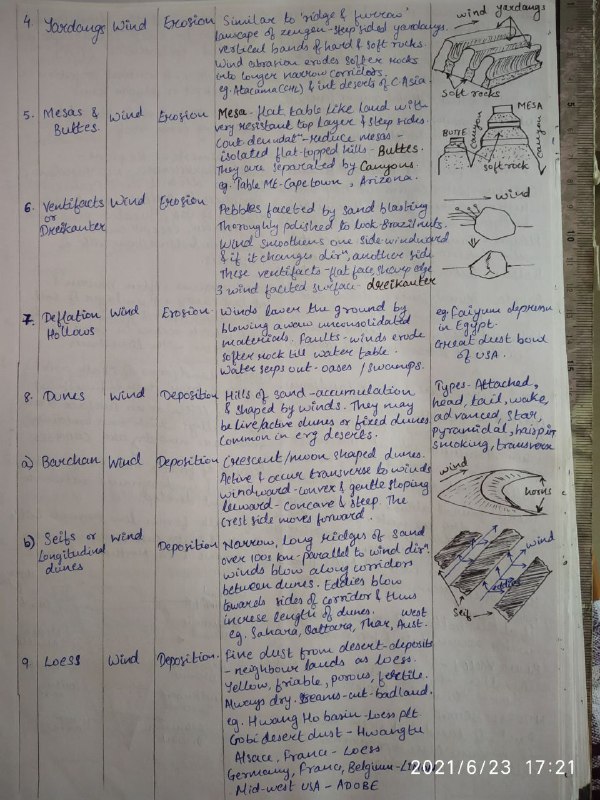 4. Yardangs Wind Erosion Similar to 'ridge & furrow'
lanscape of zeugen - steep sided yardangs.
vertical bands of hard & soft rocks.
Wind abrasion erodes softer rocks
into longer narrow corridors.
eg. Atacama & int deserts of C.Asia.
wind yardangs
soft rocks
5. Mesas & Buttes. Wind Erosion Mesa - flat table like land with
very resistant top layer & steep sides.
Cont denudatn - reduce mesas -
isolated flat-topped hills - Buttes.
They are separated by Canyons.
eg. Table Mt - Cape town, Arizona.
MESA
BUTTE
canyon
canyon
soft rock
6. Ventifacts or Dreikanter Wind Erosion Pebbles faceted by sand blasting
Thoroughly polished to look Brazil nuts.
Wind smoothens one side windward
& if it changes dirn, another side
These ventifacts - flat face, sharp edge
3 wind faceted surface - dreikanter
wind
7. Deflation Hollows Wind Erosion Winds lower the ground by
blowing away unconsolidated
materials. Faults - winds erode
softer rock till water table.
Water seeps out - oases / swamps.
eg. Faiyum depressn
in Egypt.
Great dust bowl
of USA.
8. Dunes Wind Deposition Hills of sand - accumulation
& shaped by winds. They may
be live/active dunes or fixed dunes
Common in erg deserts.
Types - Attached,
head, tail, wake,
advanced, star,
pyramidal, hairpin
smoking, transverse
a) Barchan Wind Deposition Crescent/moon shaped dunes.
Active & occur transverse to winds
windward - convex & gentle sloping
leeward - concave & steep. The
crest side moves forward.
wind
horns
b) Seifs or Longitudinal dunes Wind Deposition Narrow, long ridges of sand
over 100s km - parallel to wind dirn.
winds blow along corridors
between dunes. Eddies blow
towards sides of corridor & thus
increse length of dunes. West
eg. Sahara, Qattara, Thar, Aust.
wind
eddies
Seif
9. Loess Wind Deposition. Fine dust from desert - deposits
- neighbour lands as loess.
Yellow, friable, porous, fertile.
Always dry. Streams - cut - badland.
eg. Hwang Ho basin - Loess plt
Gobi desert dust - Hwangtu
Alsace, France - Loess
Germany, France, Belgium -
Mid-west USA - ADOBE
2021/6/23 17:21